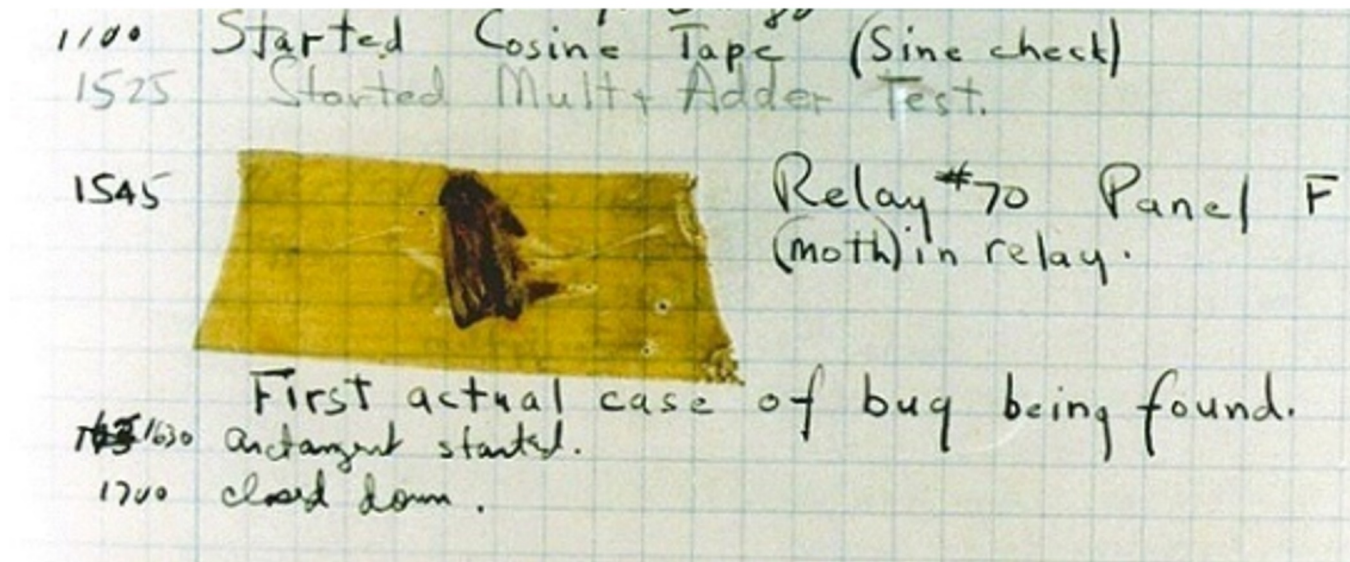 1100 Started Cosine Tape (Sine check)
1525 Started Mult + Adder Test.
1545 Relay #70 Panel F
(moth) in relay.
First actual case of bug being found.
1630 arctangent started.
1700 closed down.